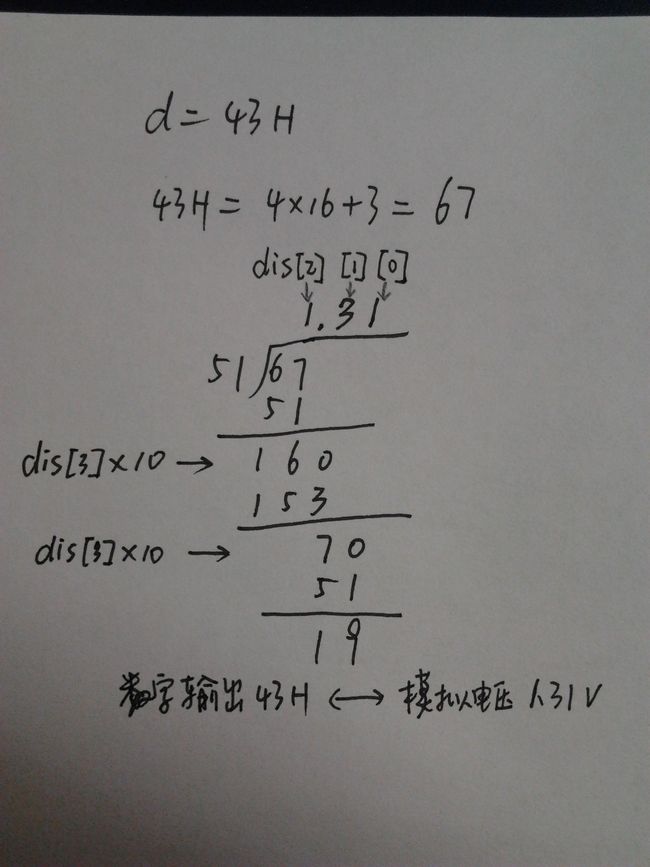 d = 43H
43H = 4×16+3 = 67
dis[2] [1] [0]
↓ ↓ ↓
1.31
51 67
51
dis[3]×10 → 160
153
dis[3]×10 → 70
51
19
数字输出 43H ↔ 模拟电压 1.31V